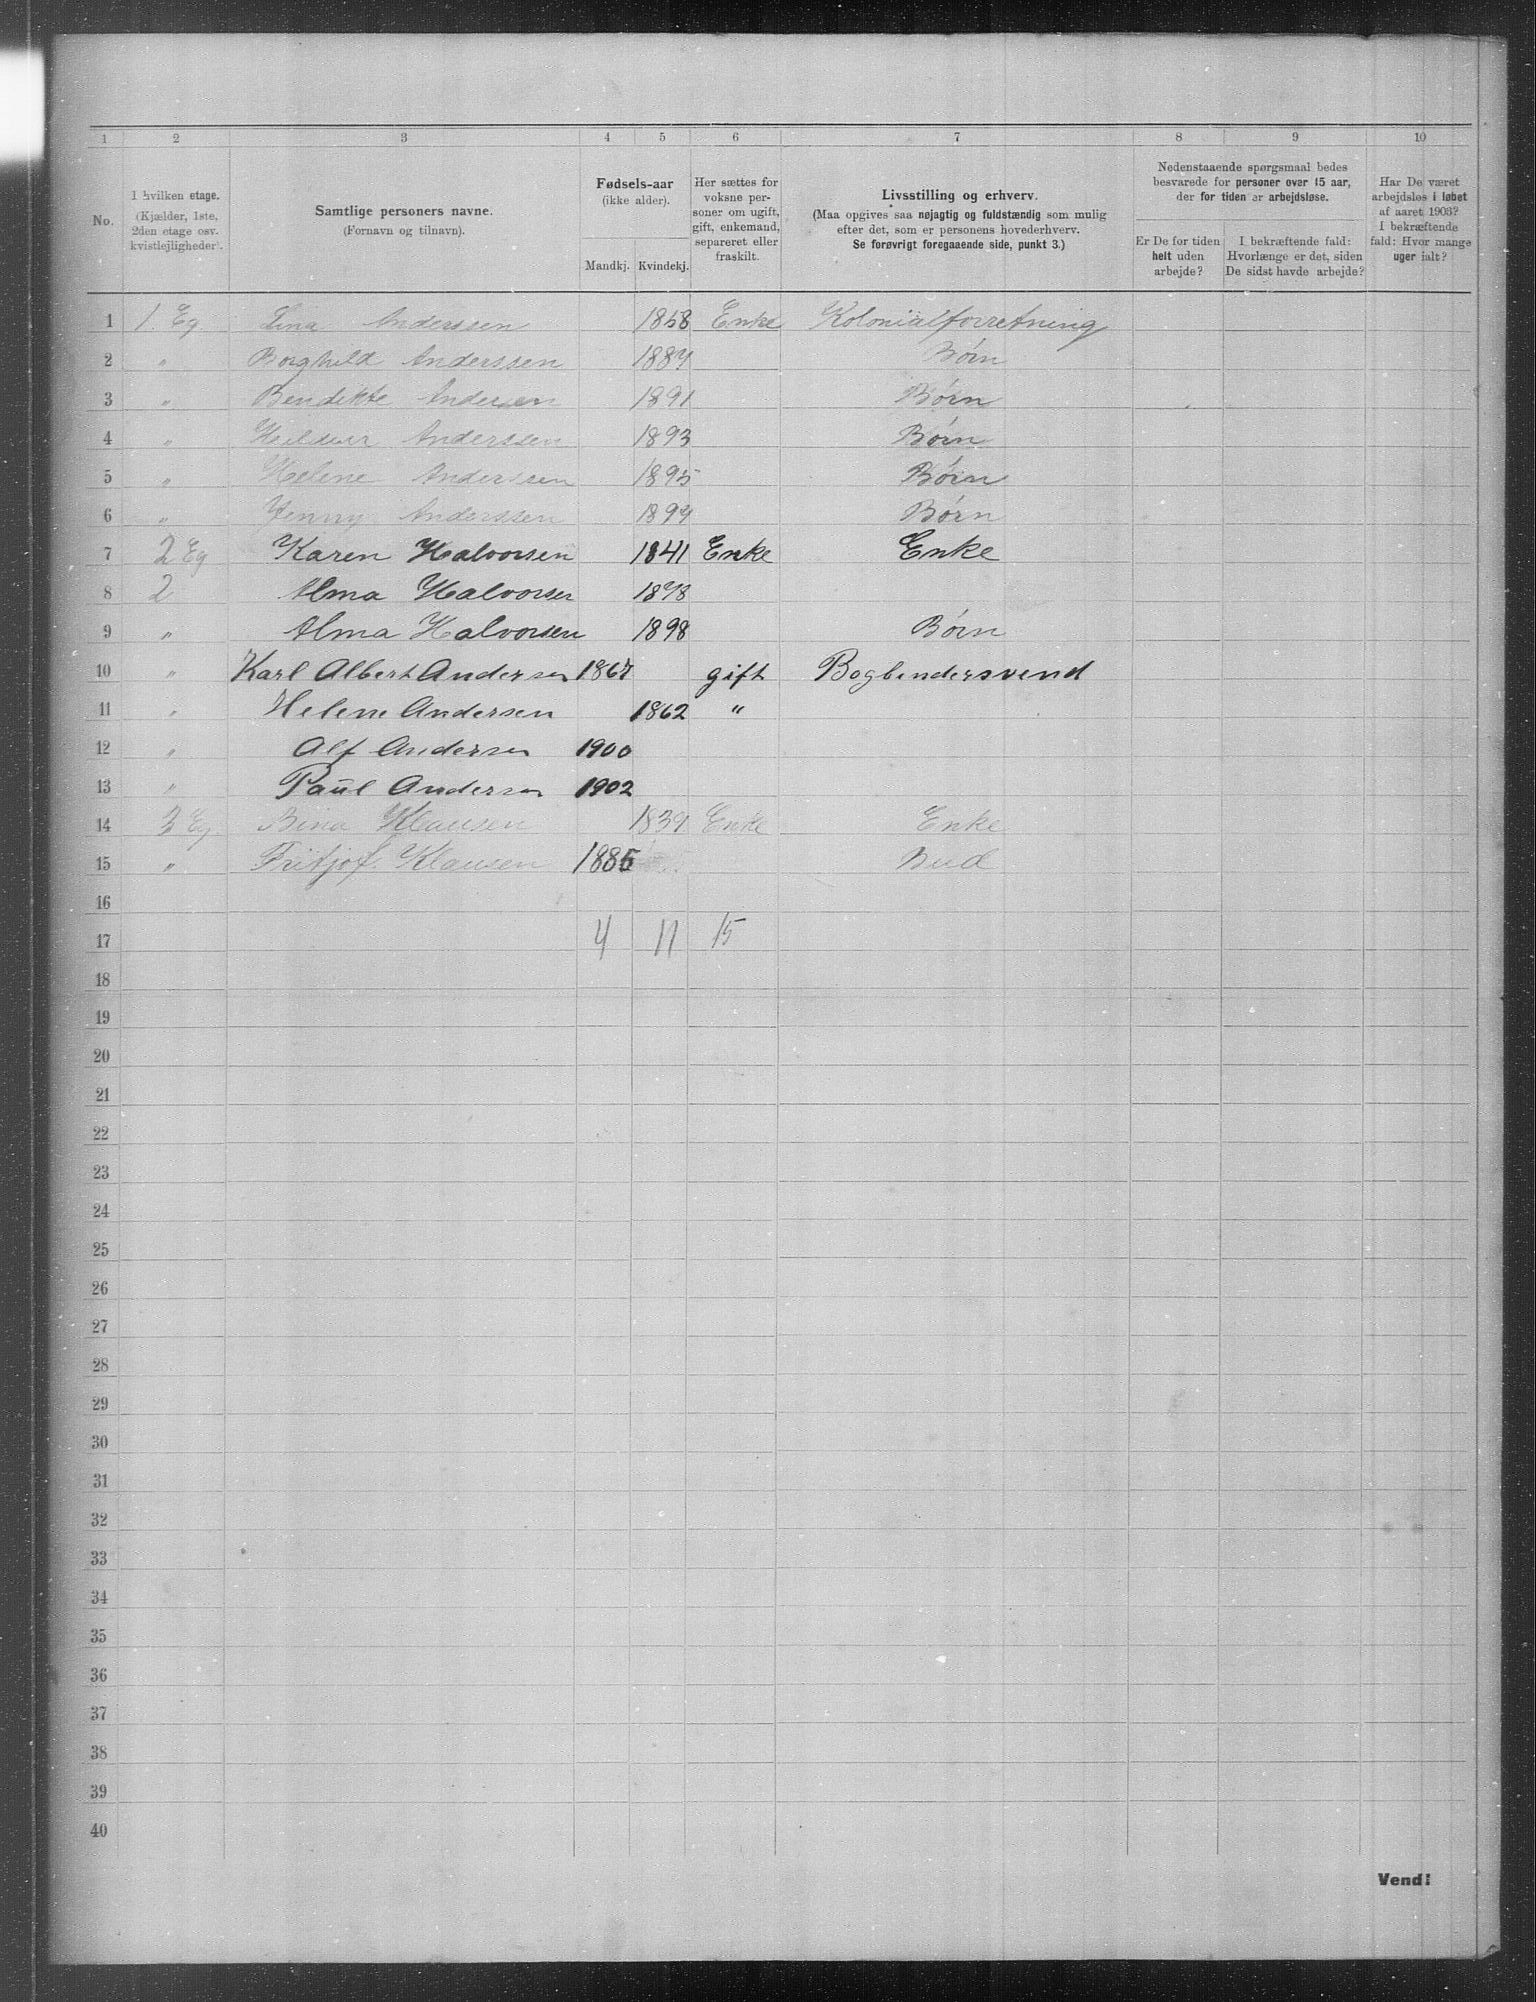 1 2 3 4 5 6 7 8 9 10
No.
I hvilken etage.
(Kjælder, 1ste,
2den etage osv.
kvistlejligheder).
Samtlige personers navne.
(Fornavn og tilnavn).
Fødsels-aar
(ikke alder).
Mandkj. Kvindekj.
Her sættes for
voksne per-
soner om ugift,
gift, enkemand,
separeret eller
fraskilt.
Livsstilling og erhverv.
(Maa opgives saa nøjagtig og fuldstændig som mulig
efter det, som er personens hovederhverv.
Se forøvrigt foregaaende side, punkt 3.)
Nedenstaaende spørgsmaal bedes
besvarede for personer over 15 aar,
der for tiden er arbejdsløse.
Er De for tiden
helt uden
arbejde?
I bekræftende fald:
Hvorlænge er det, siden
De sidst havde arbejde?
Har De været
arbejdsløs i løbet
af aaret 1903?
I bekræftende
fald: Hvor mange
uger ialt?
1 1. Eg Lina Anderssen 1858 Enke Kolonialforretning
2 " Borghild Anderssen 1887 Børn
3 " Bendikte Andersen 1891 Børn
4 " Anderssen 1893 Børn
5 " Helene Anderssen 1895 Børn
6 " Jenny Anderssen 1899 Børn
7 2 Eg Karen Halvorsen 1841 Enke Enke
8 2 Alma Halvorsen 1878
9 " Alma Halvorsen 1898 Børn
10 " Karl Albert Andersen 1867 gift Bogbendersvend
11 " Helene Andersen 1862 "
12 " Alf Andersen 1900
13 " Paul Andersen 1902
14 3 Eg Bina Klausen 1839 Enke Enke
15 " Fritjof Klausen 1885 Bud
16
17 4 11 15
18
19
20
21
22
23
24
25
26
27
28
29
30
31
32
33
34
35
36
37
38
39
40
Vend!